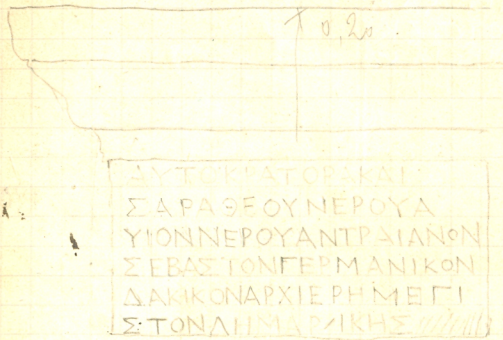 0,20
ΑΥΤΟΚΡΑΤΟΡΑΚΑΙ
ΣΑΡΑΘΕΟΥΝΕΡΟΥΑ
ΥΙΟΝΝΕΡΟΥΑΝΤΡΑΙΑΝΟΝ
ΣΕΒΑΣΤΟΝΓΕΡΜΑΝΙΚΟΝ
ΔΑΚΙΚΟΝΑΡΧΙΕΡΗΜΕΓΙ
ΣΤΟΝΔΗΜΑΡ/ΙΚΗΣ